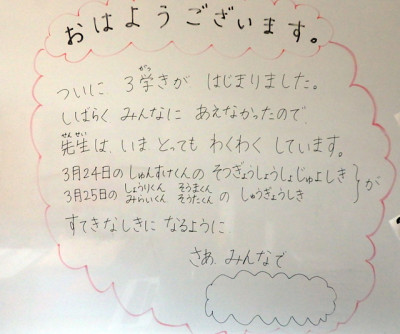 おはようございます。
ついに 3学きが はじまりました。
がっ
しばらく みんなに あえなかったので、
先生は、いま とっても わくわく しています。
せんせい
3月24日の しゅんすけくんの そつぎょうしょうしょじゅよしき
3月25日の しょうりくん そうまくん みらいくん そうたくん の しゅうぎょうしき
が
すてきなしきに なるように
さあ、みんなで